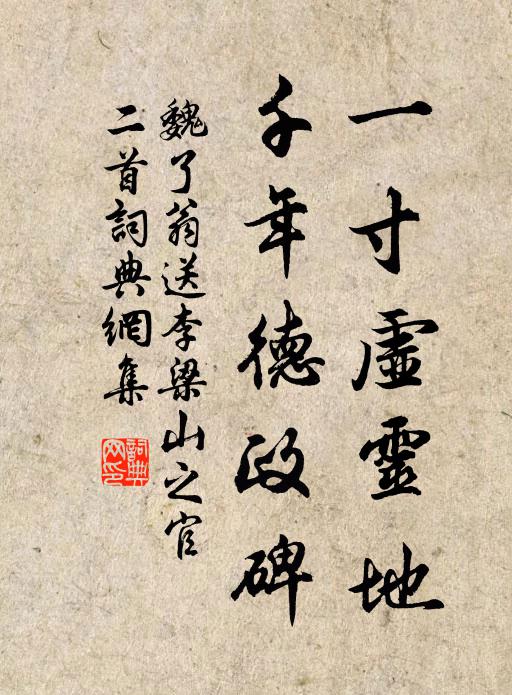 一寸虛靈地
千年德政碑
魏了翁送李梁山之官
二首詞典網集
詞典网印